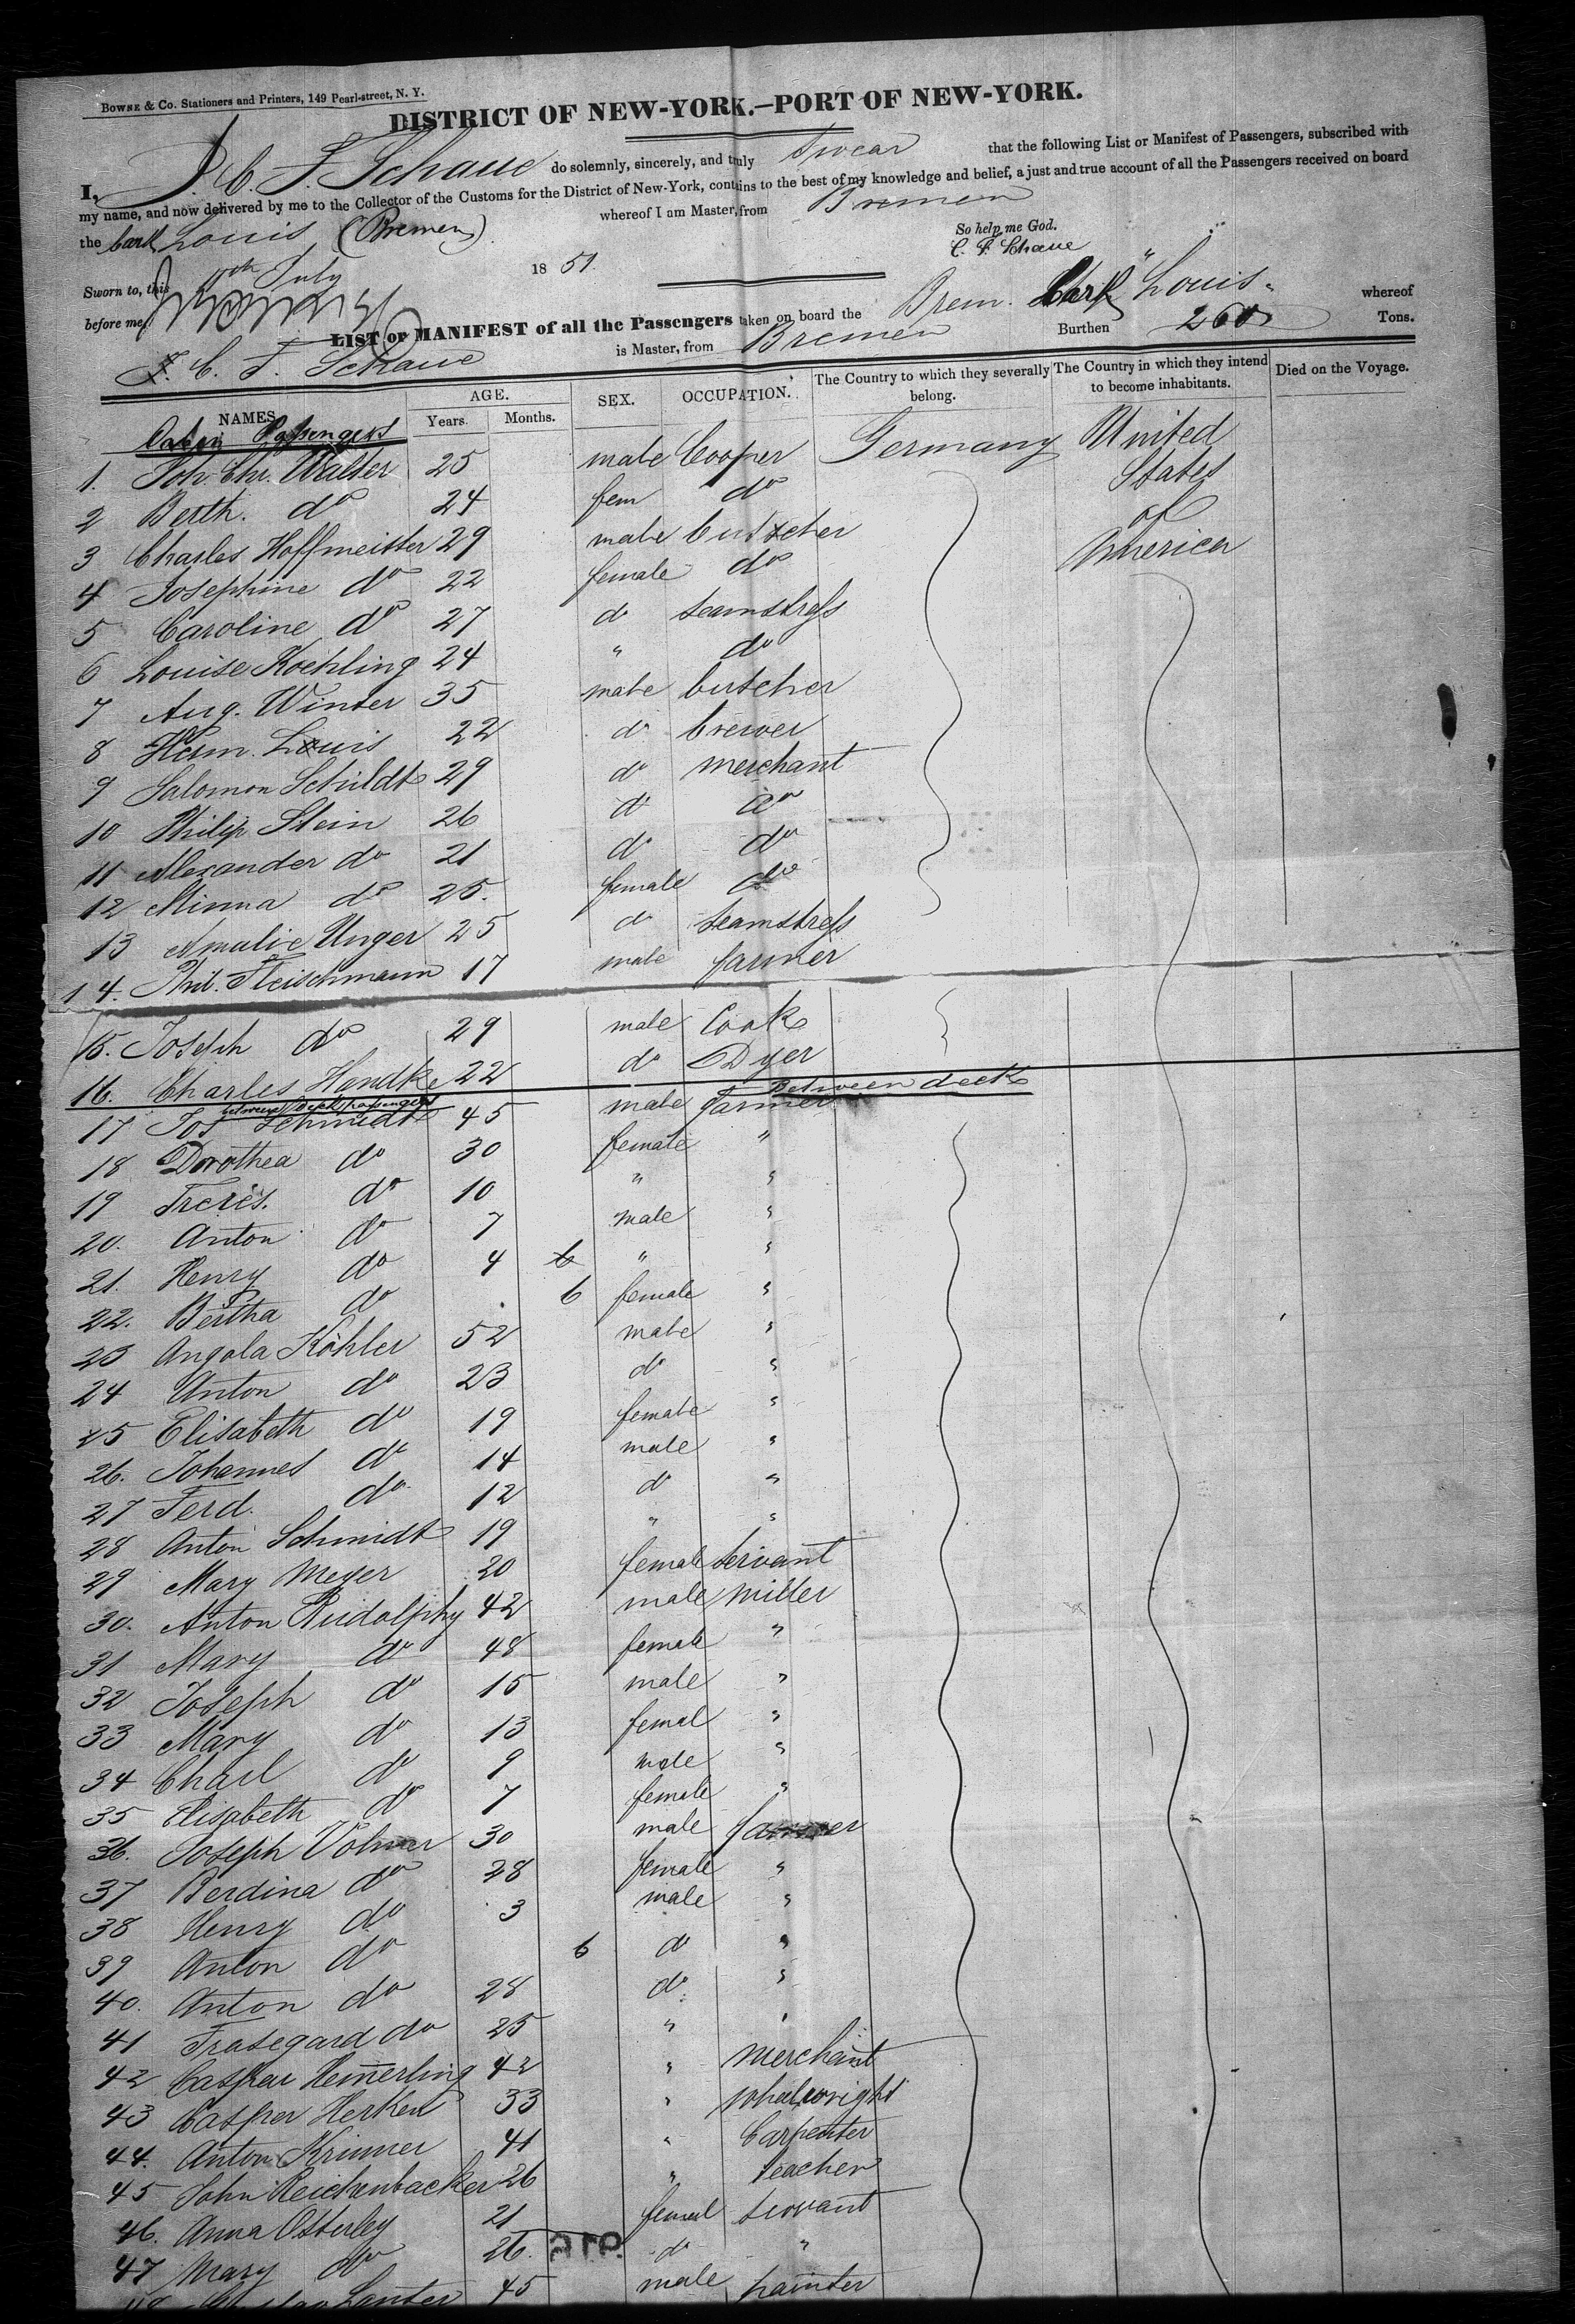 BOWNE & CO. Stationers and Printers, 149 Pearl-street, N. Y.
DISTRICT OF NEW-YORK.—PORT OF NEW-YORK.
I, J. C. F. Schaue do solemnly, sincerely, and truly swear that the following List or Manifest of Passengers, subscribed with
my name, and now delivered by me to the Collector of the Customs for the District of New-York, contains to the best of my knowledge and belief, a just and true account of all the Passengers received on board
the bark Louis (Bremen) whereof I am Master, from Bremen
So help me God.
Sworn to, this July 1851. C. F. Schaue
before me,
LIST or MANIFEST of all the Passengers taken on board the Brem. Bark "Louis" whereof
J. C. F. Schaue is Master, from Bremen Burthen 260 Tons.
NAMES. AGE. Years. Months. SEX. OCCUPATION. The Country to which they severally belong. The Country in which they intend to become inhabitants. Died on the Voyage.
Cabin Passengers
1. Joh. Chr. Walter 25 male Cooper Germany United
2 Berth. do 24 fem do States
3 Charles Hoffmeister 29 male butscher of
4 Josephine do 22 female do America
5 Caroline do 27 do seamstress
6 Louise Koehling 24 " do
7 Aug. Winter 35 male butcher
8 Herm. Louis 22 do brewer
9 Salomon Schildt 29 do merchant
10 Philip Stein 26 do do
11 Alexander do 21 do do
12 Minna do 25. female do
13 Amalie Unger 25 do seamstress
14. Phil. Fleischmann 17 male farmer
15. Joseph do 29 male Cook
16. Charles Handke 22 do Dyer
between Deck passengers Between deck
17 Jos Schmidt 45 male Farmer
18 Dorothea do 30 female "
19 Treres. do 10 " "
20. Anton do 7 male "
21. Henry do 4 " "
22. Bertha do 6 female "
23 Angola Köhler 52 male "
24 Anton do 23 do "
25 Elisabeth do 19 female "
26. Johannes do 14 male "
27 Ferd. do 12 do "
28 Anton Schmidt 19 " "
29 Mary Meyer 20 female servant
30. Anton Rudolphy 42 male miller
31 Mary do 48 female "
32 Joseph do 15 male "
33 Mary do 13 femal "
34 Charl do 9 male "
35 Elisabeth do 7 female "
36. Joseph Volmer 30 male farmer
37 Berdina do 28 female "
38 Henry do 3 male "
39 Anton do 6 do "
40. Anton do 28 do "
41 Frasegard do 25 " "
42 Caspar Hem̄erling 42 " merchant
43 Casper Herken 33 " whealwright
44. Anton Krimmer 41 " Carpenter
45 John Reichenbacker 26 " teacher
46. Anna Osterley 21 femal servant
47 Mary do 26. do "
Lanter 45 male painter